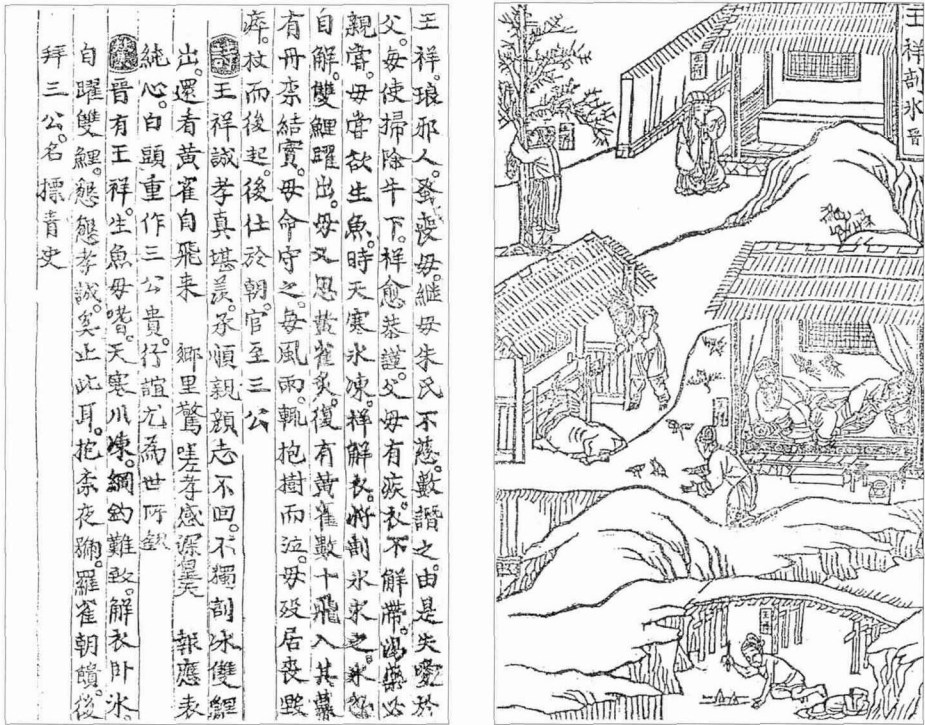 王祥剖氷 晋
王祥
王祥
王祥
王祥
王祥。琅邪人。蚤喪母。繼母朱氏不慈。數譖之。由是失愛於
父。每使掃除牛下。祥愈恭謹。父母有疾。衣不解帶。湯藥必
親嘗。母嘗欲生魚。時天寒氷凍。祥解衣。將剖氷求之。氷忽
自解。雙鯉躍出。母又思黄雀炙。復有黄雀數十飛入其幕
有丹柰結實。母命守之。每風雨。輒抱樹而泣。母歿居喪毀
瘁。杖而後起。後仕於朝。官至三公
詩 王祥誠孝真堪羡。承順親顔志不回。不獨剖氷雙鯉
出。還看黄雀自飛来 鄉里驚嗟孝感深 皇天報應表
純心。白頭重作三公貴。行誼尤為世所欽
贊 晋有王祥。生魚母嗜。天寒川凍。網釣難致。解衣卧氷。
自躍雙鯉。慇慇孝誠。奚止此耳。抱柰夜號。羅雀朝饋。後
拜三公。名標青史